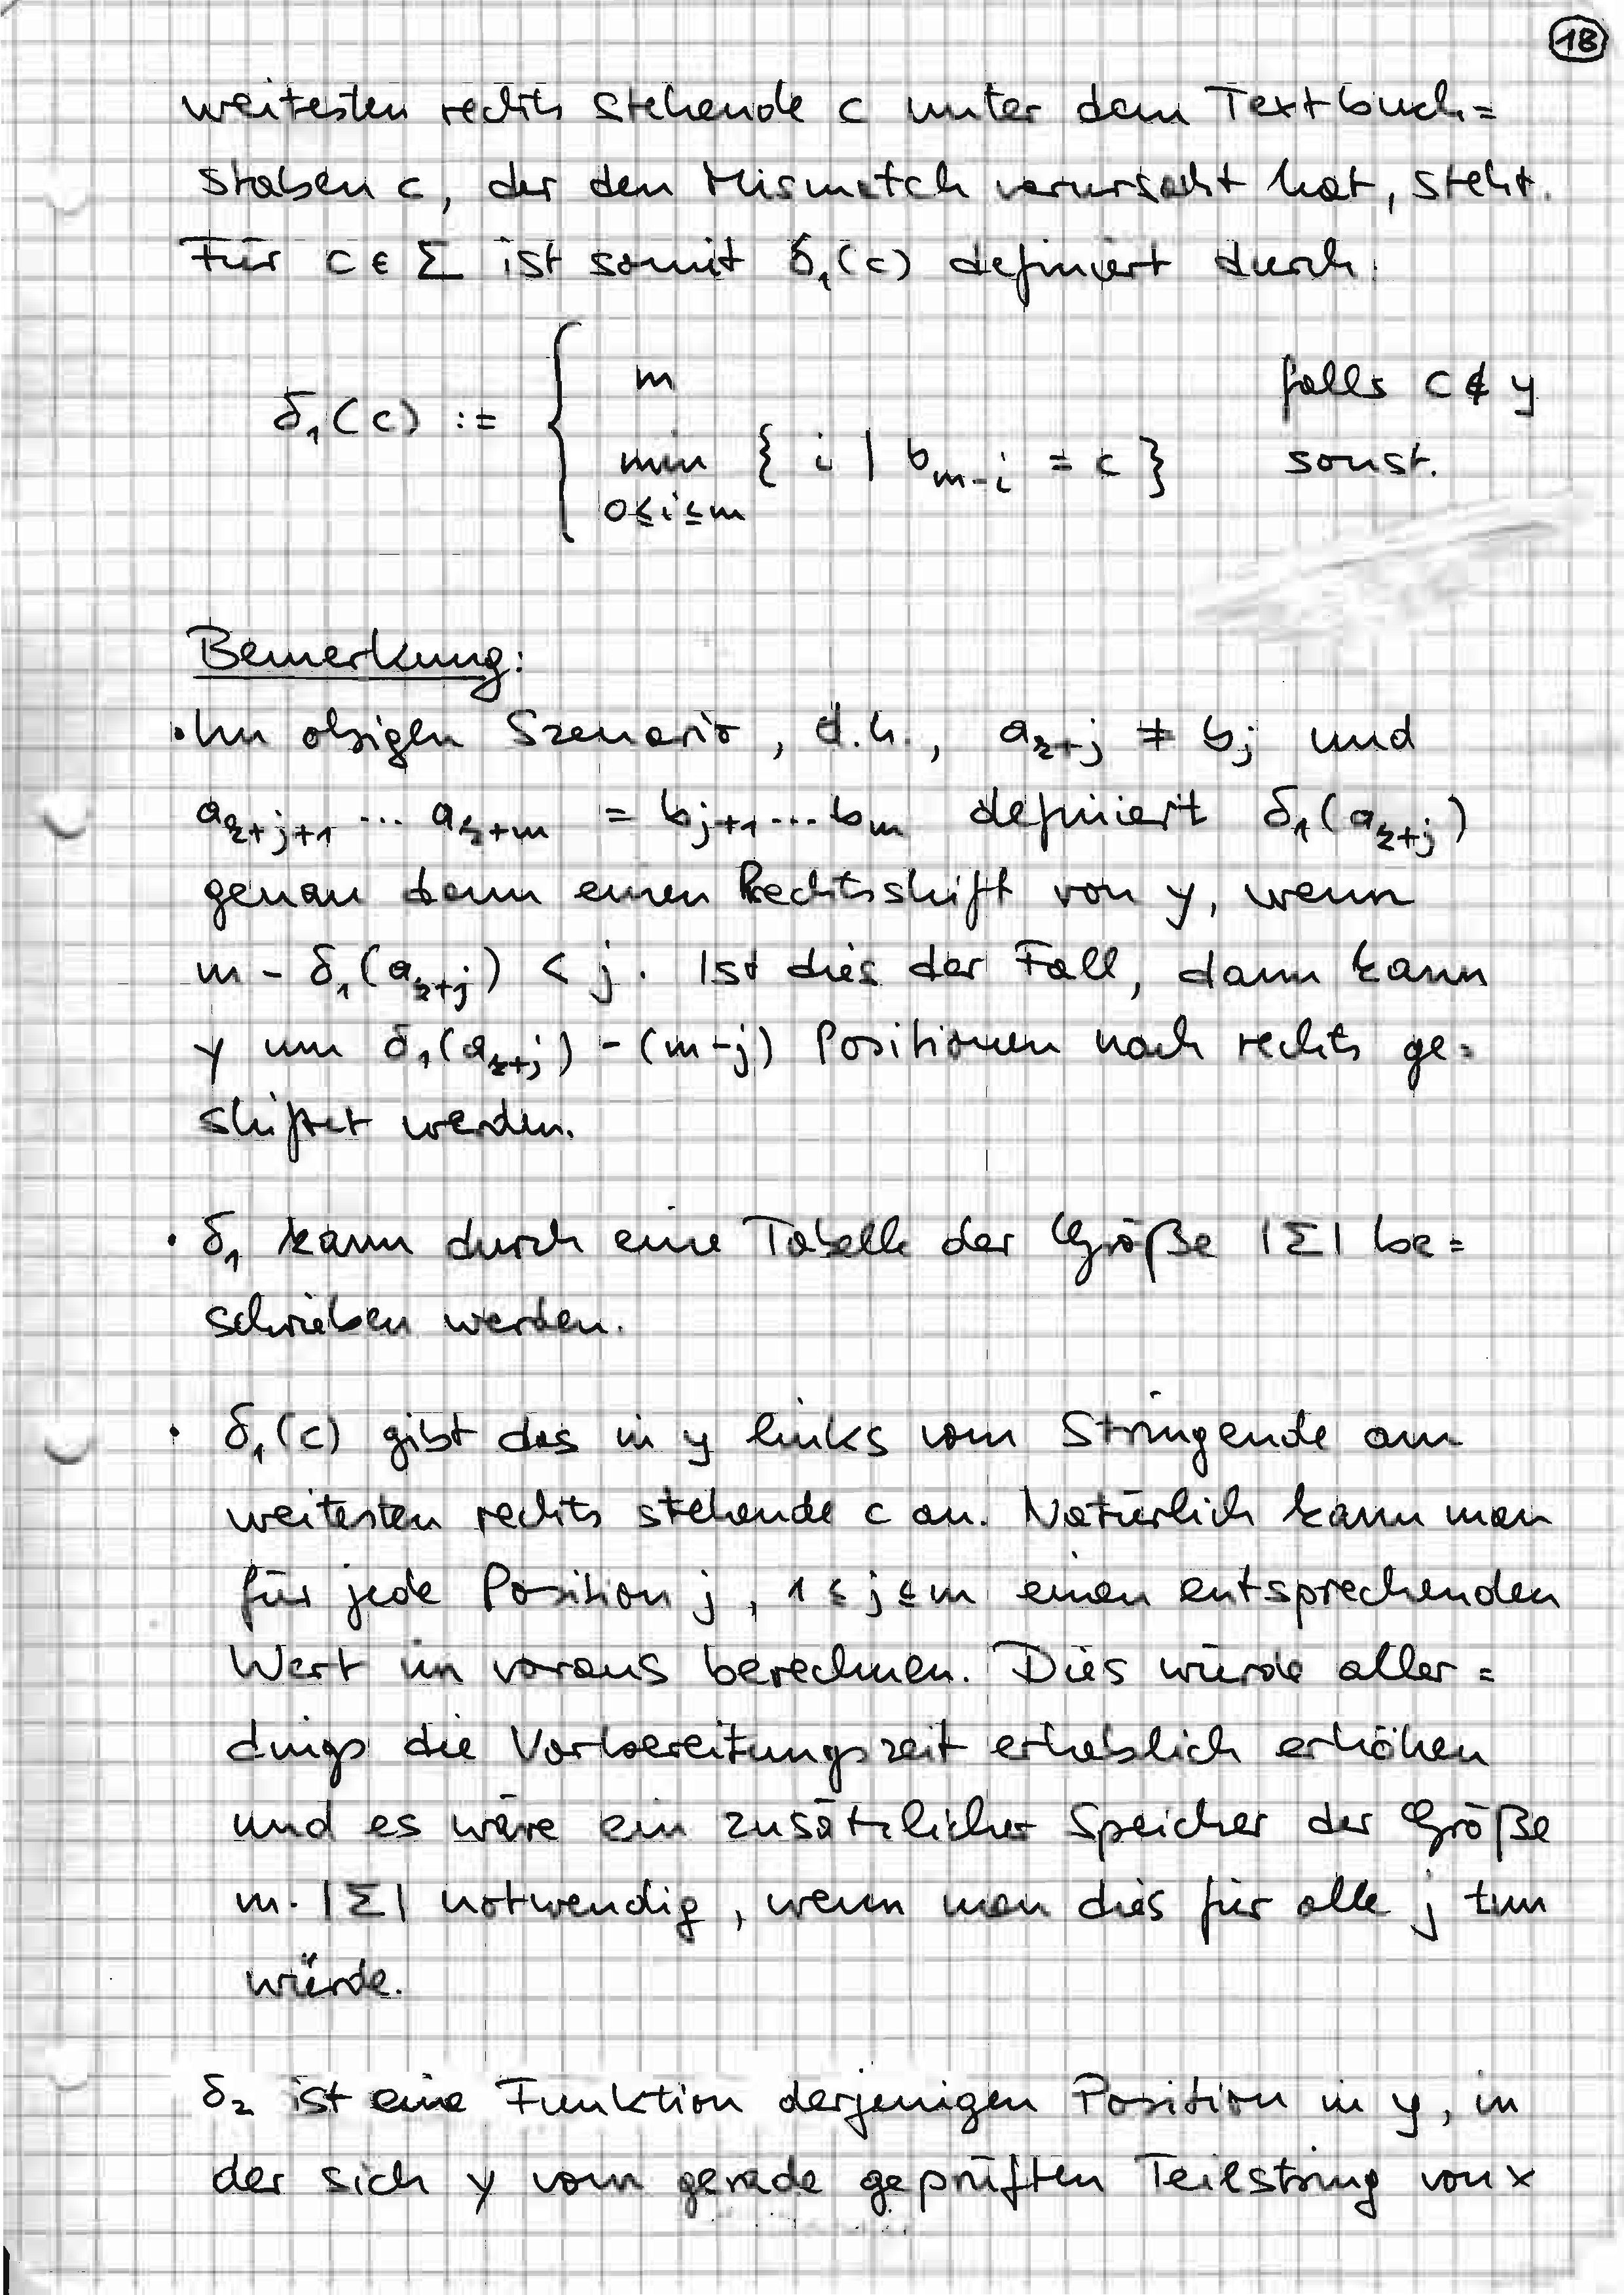 18
weitesten rechts stehende c unter dem Textbuch=
staben c, der den Mismatch verursacht hat, steht.
Für c ∈ Σ ist somit δ₁(c) definiert durch:
δ₁(c) := { m falls c ∉ y
min { i | b_{m-i} = c } sonst.
0≤i≤m
Bemerkung:
• Im obigen Szenario, d.h., a_{r+j} ≠ b_j und
a_{r+j+1} ... a_{r+m} = b_{j+1} ... b_m definiert δ₁(a_{r+j})
genau dann einen Rechtsshift von y, wenn
m - δ₁(a_{r+j}) < j. Ist dies der Fall, dann kann
y um δ₁(a_{r+j}) - (m-j) Positionen nach rechts ge=
shiftet werden.
• δ₁ kann durch eine Tabelle der Größe |Σ| be=
schrieben werden.
• δ₁(c) gibt das in y links vom Stringende am
weitesten rechts stehende c an. Natürlich kann man
für jede Position j, 1 ≤ j ≤ m einen entsprechenden
Wert im voraus berechnen. Dies würde aller=
dings die Vorbereitungszeit erheblich erhöhen
und es wäre ein zusätzlicher Speicher der Größe
m·|Σ| notwendig, wenn man dies für alle j tun
würde.
δ₂ ist eine Funktion derjenigen Position in y, in
der sich y vom gerade geprüften Teilstring von x